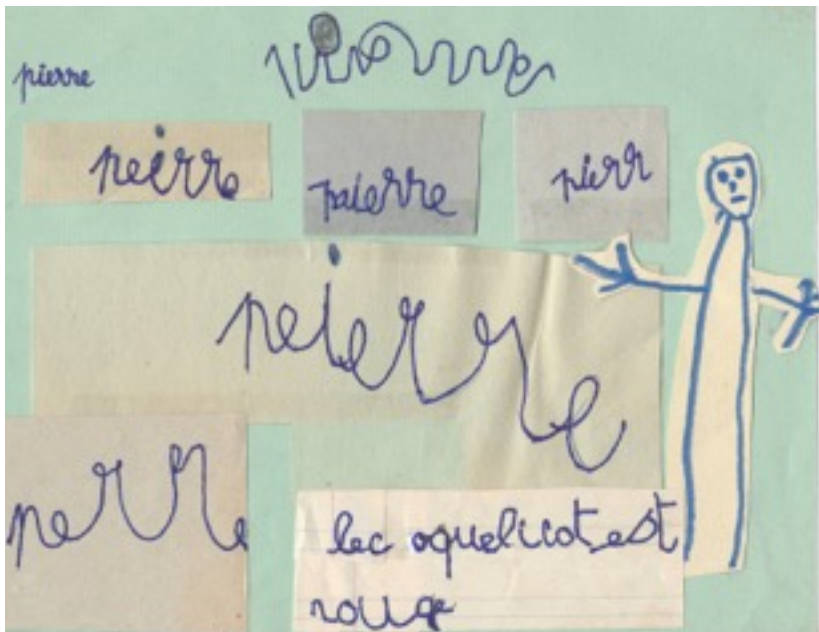 pierre
peirre
paierre
pierr
peierre
perre
lec oquelicot est
rouge